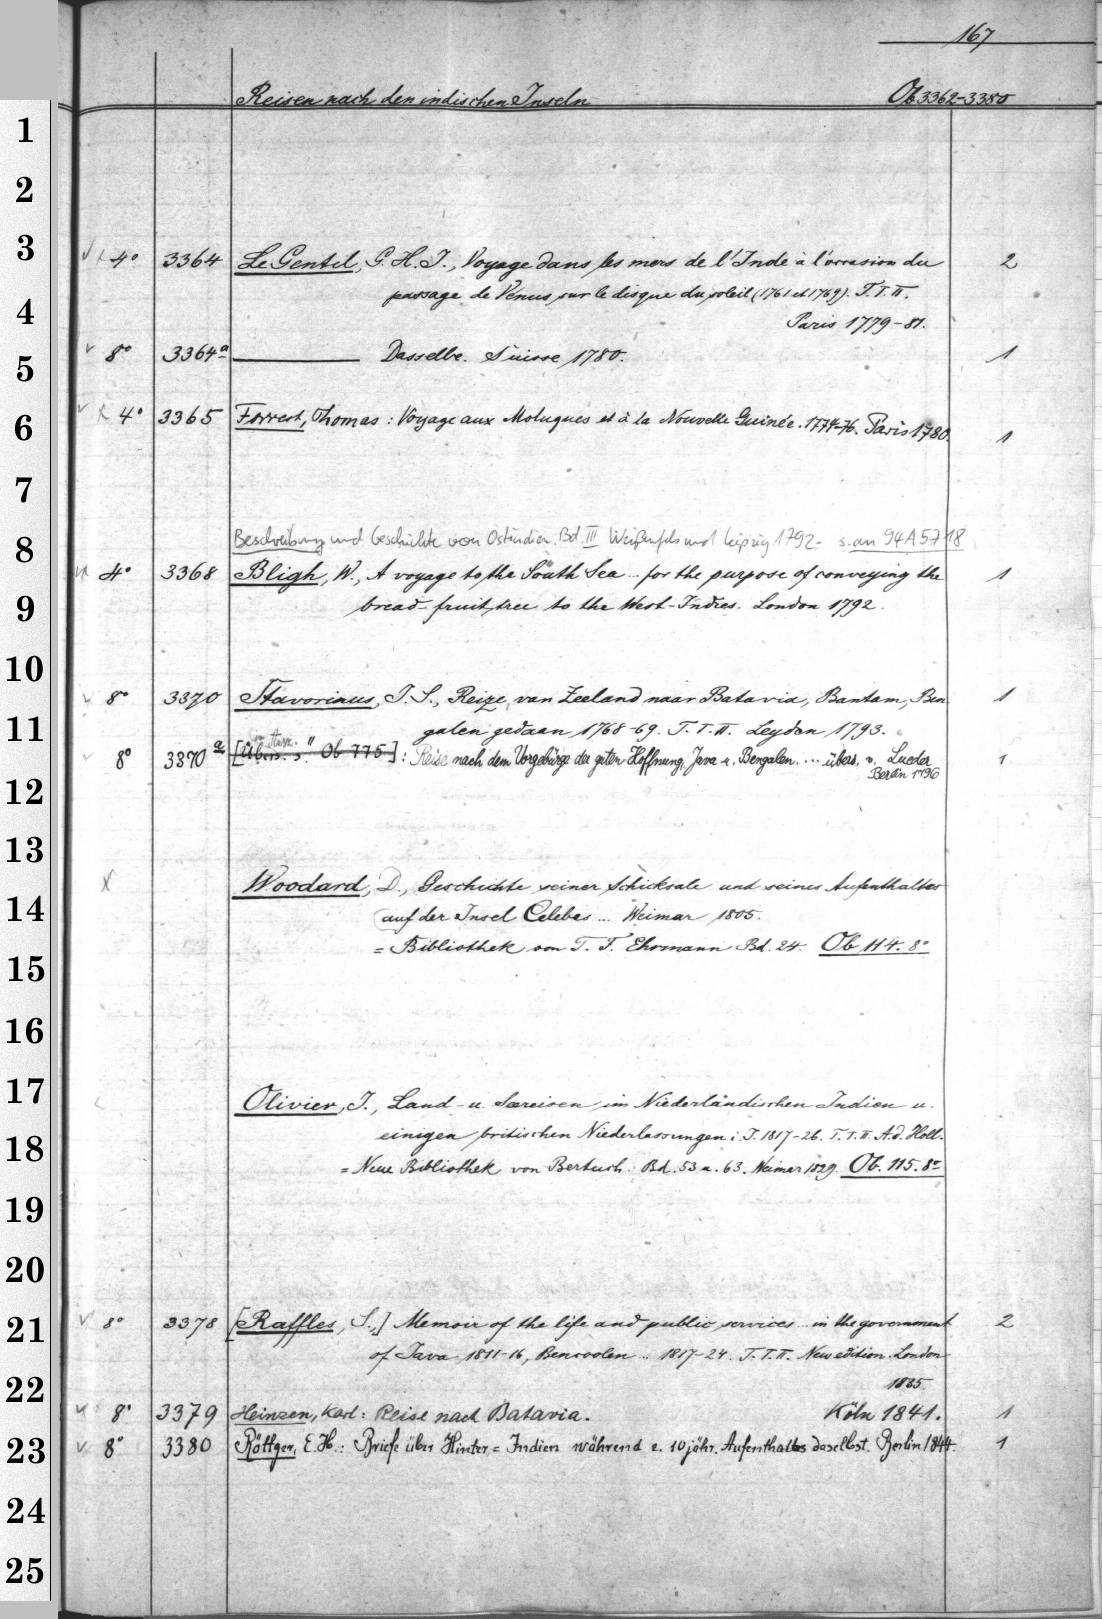 167
Reisen nach den indischen Inseln Ob 3362-3380
1
2
3
4° 3364 Le Gentil, G. H. J., Voyage dans les mers de l'Inde à l'occasion du 2
4
passage de Venus sur le disque du soleil (1761 et 1769). T. I. II.
Paris 1779-81.
5
8° 3364a ——— Dasselbe. Suisse 1780. 1
6
4° 3365 Forrest, Thomas: Voyage aux Moluques et à la Nouvelle Guinée. 1774-76. Paris 1780. 1
7
8
Beschreibung und Geschichte von Ostindien. Bd. III Weißenfels und Leipzig 1792. s. an 94 A 5718
4° 3368 Bligh, W., A voyage to the South Sea ... for the purpose of conveying the 1
9
bread-fruit tree to the West-Indies. London 1792.
10
8° 3370 Stavorinus, J. S., Reize van Zeeland naar Batavia, Bantam, Ben- 1
11
galen gedaan 1768-69. T. I. II. Leyden 1793.
8° 3370a [Übers. s. Ob 775]: Reise nach dem Vorgebürge der guten Hoffnung, Java u. Bengalen. ... übers. v. Lueder 1
Berlin 1796
12
13
14
Woodard, D., Geschichte seiner Schicksale und seines Aufenthaltes
auf der Insel Celebes ... Weimar 1805.
15
= Bibliothek von T. F. Ehrmann Bd. 24. Ob 114. 8°
16
17
Olivier, J., Land- u. Seereisen im Niederländischen Indien u.
18
einigen britischen Niederlassungen i. J. 1817-26. T. I. II. A. d. Holl.
= Neue Bibliothek von Bertuch. Bd. 53 u. 63. Weimar 1829. Ob. 115. 8°
19
20
21
8° 3378 [Raffles, S.,] Memoir of the life and public services ... in the government 2
of Java 1811-16, Bencoolen ... 1817-24. T. I. II. New edition. London
22
1835.
8° 3379 Heinzen, Karl: Reise nach Batavia. Köln 1841. 1
23
8° 3380 Röttger, E. H.: Briefe über Hinter=Indien während e. 10jähr. Aufenthaltes daselbst. Berlin 1844. 1
24
25